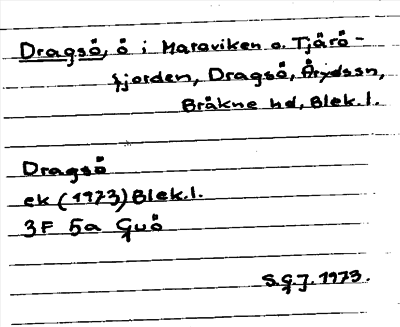 Dragsö, ö i Maraviken o. Tjärö-
fjorden, Dragsö, Åryds sn,
Bräkne hd, Blek. l.
Dragsö
ek (1973) Blek. l.
3F 5a Guö
S.G.J. 1973.